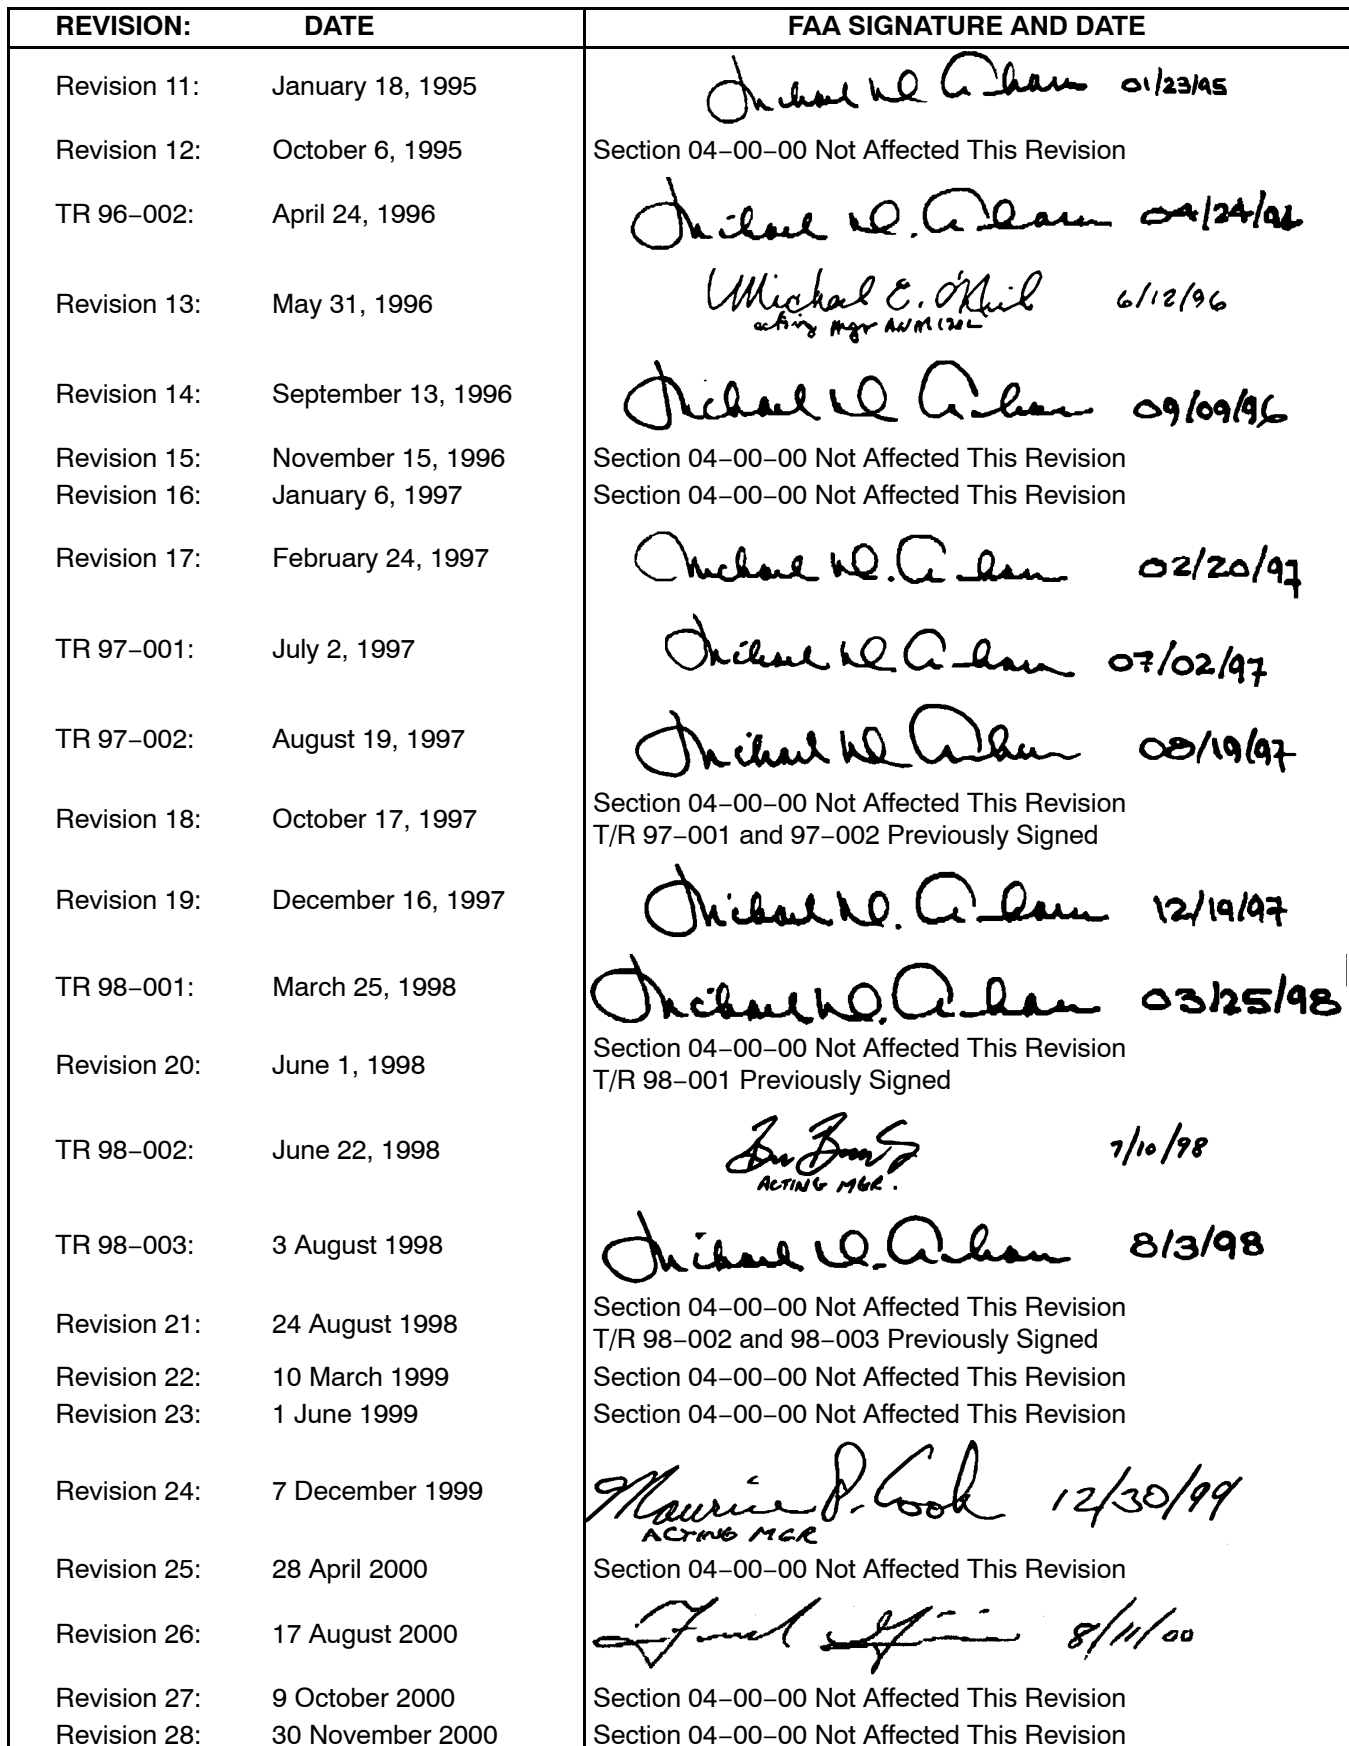 REVISION: DATE FAA SIGNATURE AND DATE
Revision 11: January 18, 1995 01/23/95
Revision 12: October 6, 1995 Section 04–00–00 Not Affected This Revision
TR 96–002: April 24, 1996 04/24/96
Revision 13: May 31, 1996 Michael E. O'Neil 6/12/96
acting Mgr
Revision 14: September 13, 1996 09/09/96
Revision 15: November 15, 1996 Section 04–00–00 Not Affected This Revision
Revision 16: January 6, 1997 Section 04–00–00 Not Affected This Revision
Revision 17: February 24, 1997 02/20/97
TR 97–001: July 2, 1997 07/02/97
TR 97–002: August 19, 1997 08/19/97
Revision 18: October 17, 1997 Section 04–00–00 Not Affected This Revision
T/R 97–001 and 97–002 Previously Signed
Revision 19: December 16, 1997 12/19/97
TR 98–001: March 25, 1998 03/25/98
Revision 20: June 1, 1998 Section 04–00–00 Not Affected This Revision
T/R 98–001 Previously Signed
TR 98–002: June 22, 1998 7/10/98
ACTING MGR.
TR 98–003: 3 August 1998 8/3/98
Revision 21: 24 August 1998 Section 04–00–00 Not Affected This Revision
T/R 98–002 and 98–003 Previously Signed
Revision 22: 10 March 1999 Section 04–00–00 Not Affected This Revision
Revision 23: 1 June 1999 Section 04–00–00 Not Affected This Revision
Revision 24: 7 December 1999 Maurice P. Cook 12/30/99
ACTING MGR
Revision 25: 28 April 2000 Section 04–00–00 Not Affected This Revision
Revision 26: 17 August 2000 8/11/00
Revision 27: 9 October 2000 Section 04–00–00 Not Affected This Revision
Revision 28: 30 November 2000 Section 04–00–00 Not Affected This Revision